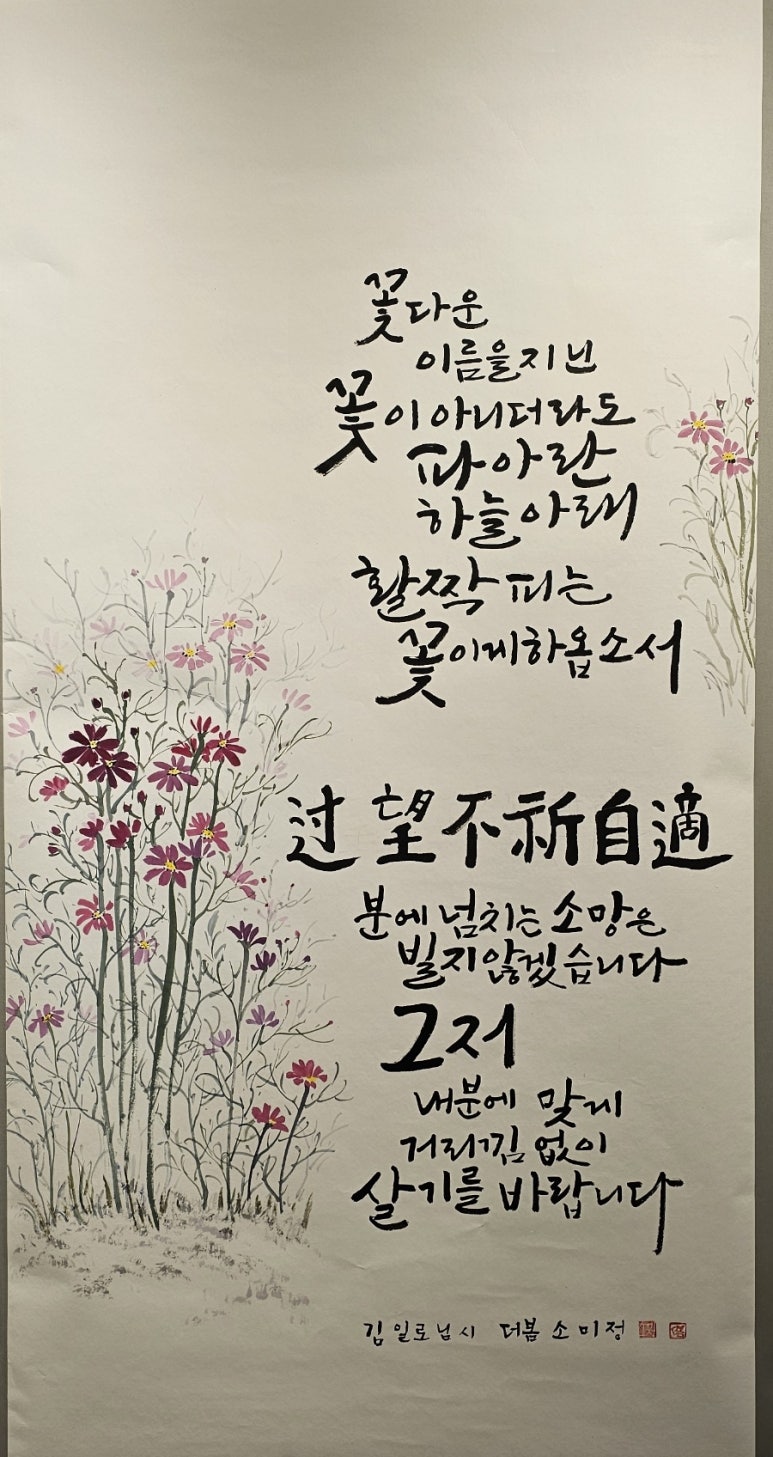 꽃다운
이름을 지닌
꽃이 아니더라도
파아란
하늘 아래
활짝 피는
꽃이게 하옵소서
过望不祈自適
분에 넘치는 소망은
빌지 않겠습니다
그저
내 분에 맞게
거리낌 없이
살기를 바랍니다
김일로님 시 더봄 소미정